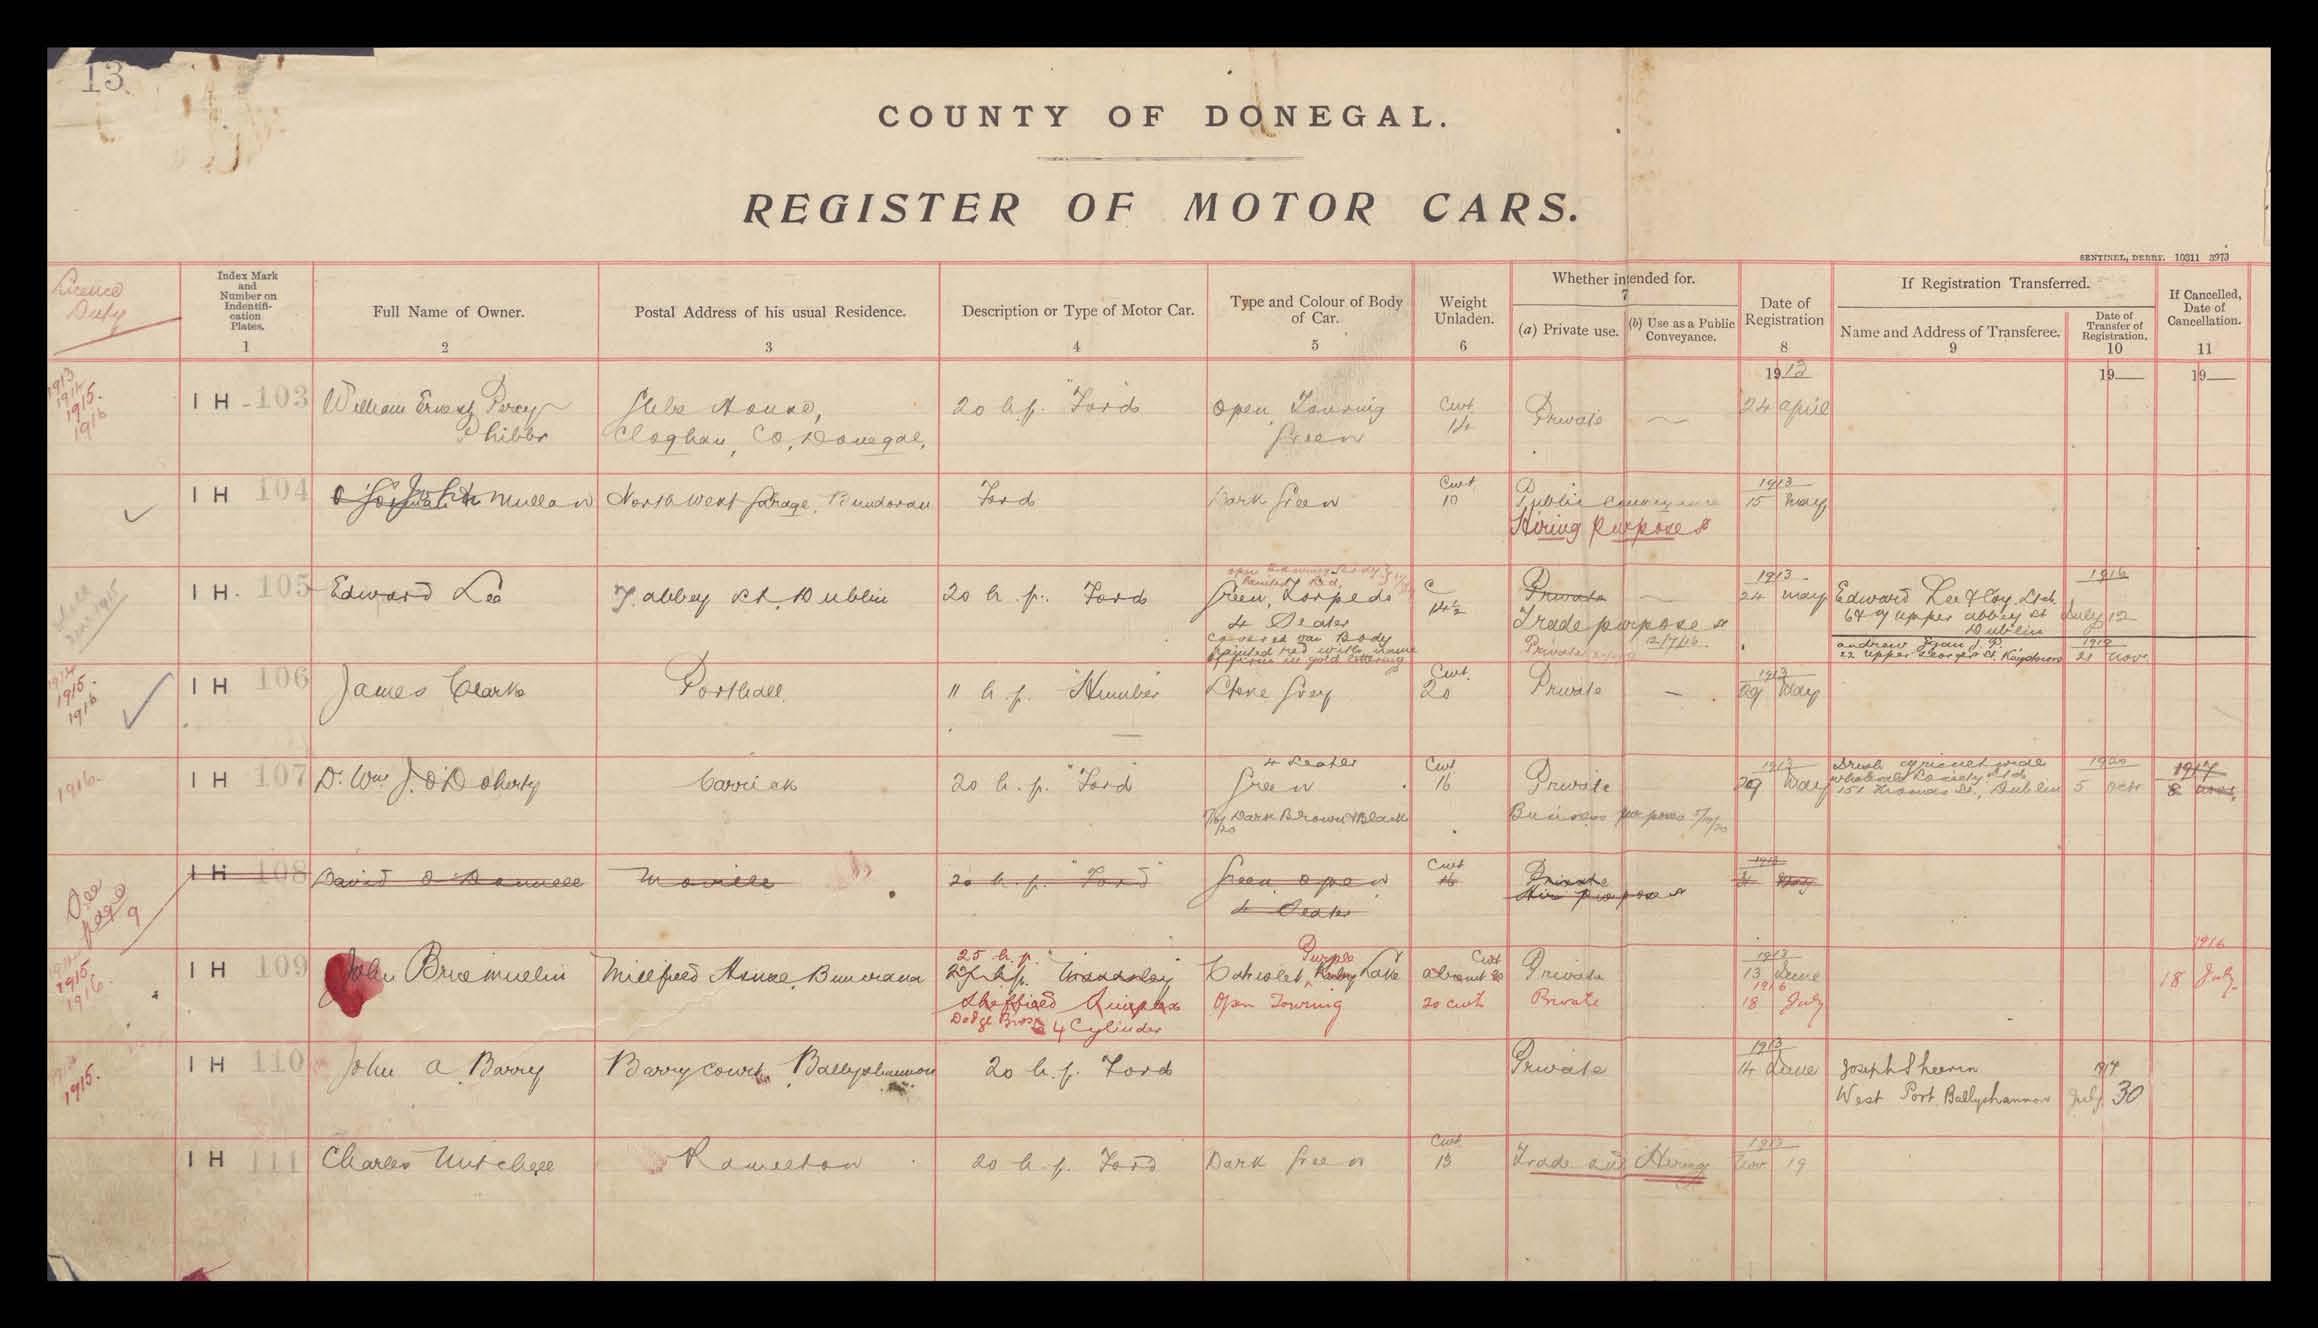 13
COUNTY OF DONEGAL.
REGISTER OF MOTOR CARS.
SENTINEL, DERRY. 10311 3973
Licence
Duty
Index Mark
and
Number on
Indentifi-
cation
Plates.
1
Full Name of Owner.
2
Postal Address of his usual Residence.
3
Description or Type of Motor Car.
4
Type and Colour of Body
of Car.
5
Weight
Unladen.
6
Whether intended for.
7
(a) Private use.
(b) Use as a Public
Conveyance.
Date of
Registration
8
If Registration Transferred.
Name and Address of Transferee.
9
Date of
Transfer of
Registration.
10
If Cancelled,
Date of
Cancellation.
11
1913
19
19
1913
1914
1915.
1916
I H 103
William Ernest Percy
Phibbs
Glebe House,
Cloghan, Co. Donegal.
20 h.p. "Ford"
Open Touring
Green
Cwt
14
Private
24 April
I H 104
John Mullan
North West Garage, Bundoran
Ford
Dark Green
Cwt
10
Public Conveyance
Hiring purposes
1913
15 May
1915
I H. 105
Edward Lee
Abbey St. Dublin
20 h.p. Ford
open touring body
Painted Red,
Green, Torpedo
4 Seater
Covered van Body
painted red with name
of firm in gold lettering
C
14½
Private
Trade purposes
Private
12/7/16
1913
24 May
Edward Lee & Coy. Ltd.
6 & 7 Upper Abbey St
Dublin
1916
July 12
Andrew Egan J.P.
22 Upper Georges St. Kingstown
1918
21 Nov.
1914
1915.
1916
I H 106
James Clarke
Porthall
11 h.p. "Humber"
Stone Grey
Cwt.
20
Private
1913
29 May
1916.
I H 107
Dr. Wm. J. O'Doherty
Carrick
20 h.p. "Ford"
4 Seater
Green
Dark Brown & Black
Cwt
16
Private
Business purposes 5/10/20
1913
29 May
Irish Agricultural
Wholesale Society Ltd
151 Thomas St., Dublin
1920
5 Octr
1917
8 Nov.
See
page
9
I H 108
David O'Donnell
Moville
20 h.p. "Ford"
Green Open
4 Seater
Cwt
16
Private
Hire purposes
1913
31 May
1915
1916.
I H 109
John Bricmullin
Millfield House, Buncrana
25 h.p.
Sheffield Simplex
Dodge Bros 4 Cylinder
Purple
Cabriolet, Ruby Lake
Open Touring
Cwt
about 30
20 cwt
Private
Private
1913
13 June
1916
18 July
1916
18 July.
1915.
I H 110
John A Barry
Barrycourt, Ballyshannon
20 h.p. Ford
Private
1913
14 June
Joseph Sheerin
West Port Ballyshannon
1917
July 30
I H 111
Charles Mitchell
Ramelton
20 h.p. Ford
Dark Green
Cwt
13
Trade and Hiring
1913
Nov 19